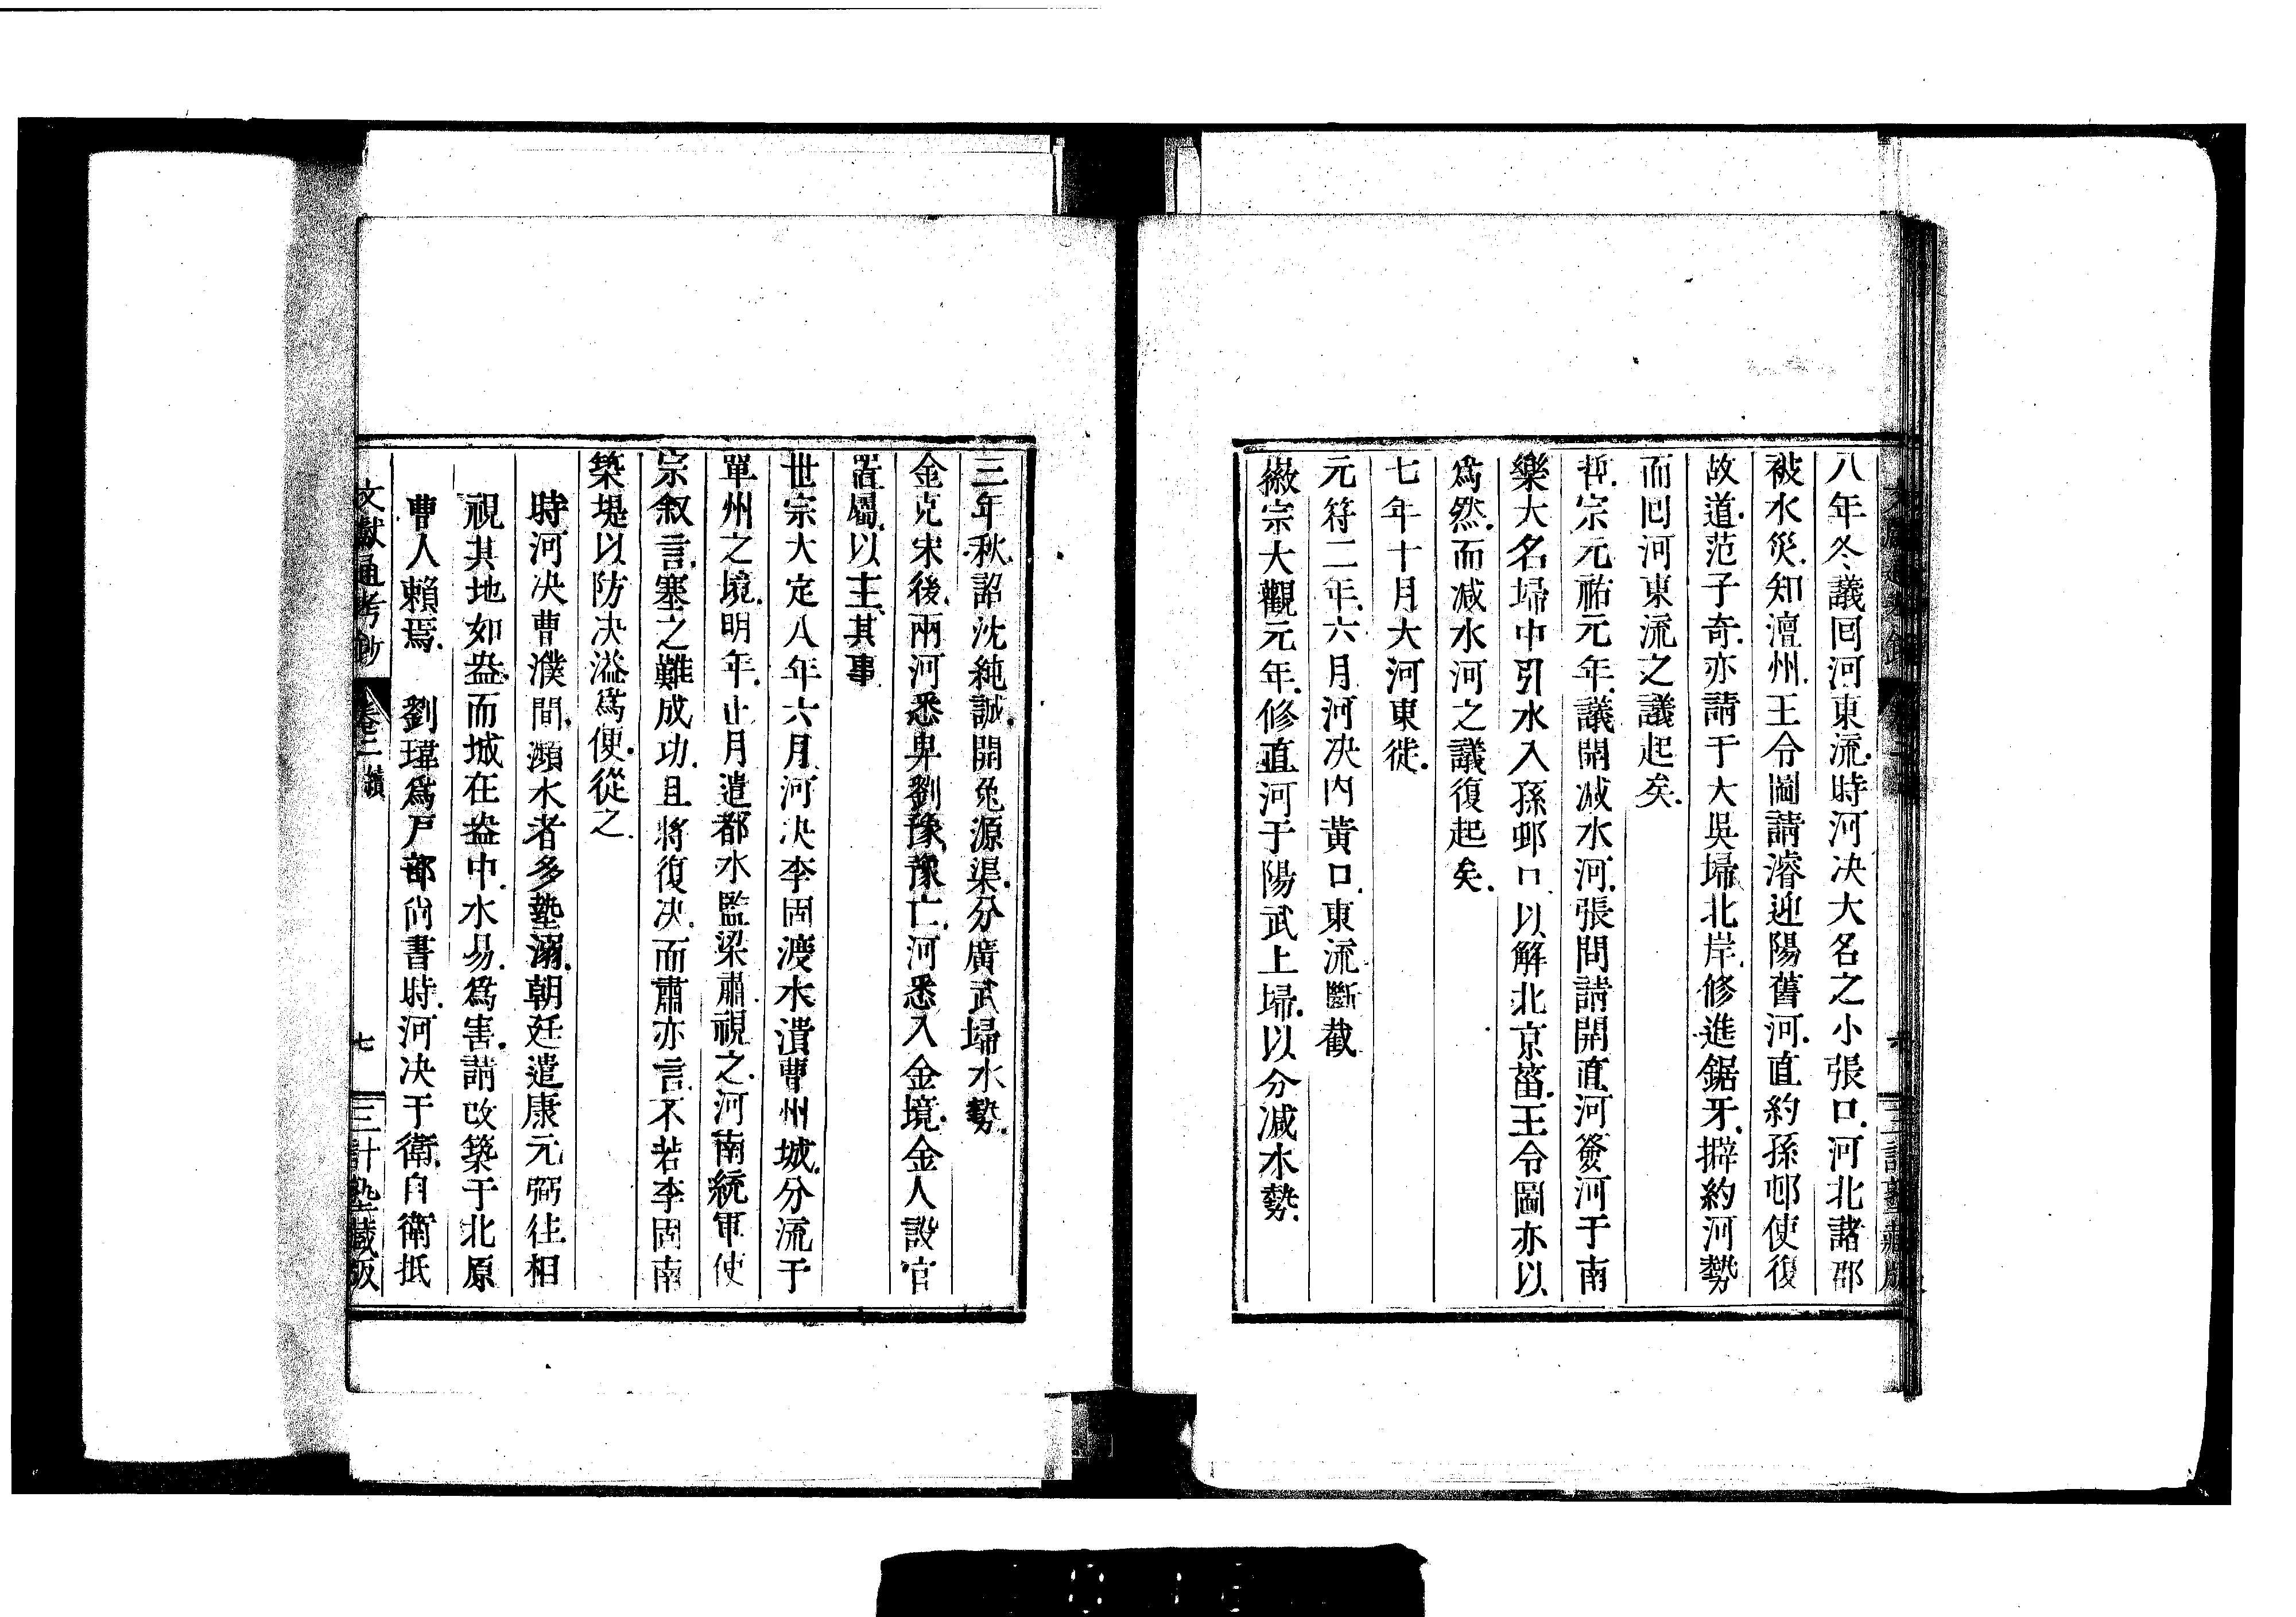 八年冬議回河東流時河决大名之小張口河北諸郡
被水災知澶州王令圖請濬迎陽舊河直約孫邨使復
故道范子奇亦請于大吳埽北岸修進鋸牙擗約河勢
而回河東流之議起矣
哲宗元祐元年議開减水河張問請開直河簽河于南
樂大名埽中引水入孫邨口以解北京菑王令圖亦以
爲然而减水河之議復起矣
七年十月大河東徙
元符二年六月河决内黃口東流斷截
徽宗大觀元年修直河于陽武上埽以分减水勢
三年秋詔沈純誠開兔源渠分廣武埽水勢
金克宋後兩河悉畀劉豫豫亡河悉入金境金人設官
置屬以主其事
世宗大定八年六月河决李固渡水潰曹州城分流于
單州之境明年正月遣都水監梁肅視之河南統軍使
宗叙言塞之難成功且將復决而肅亦言不若李固南
築堤以防决溢爲便從之
時河决曹濮間瀕水者多墊溺朝廷遣康元弼往相
視其地如盎而城在盎中水易爲害請改築于北原
曹人賴焉　劉瑋爲戸部尙書時河决于衛自衛抵
文獻通考鈔 卷二 續 七 三計塾藏版